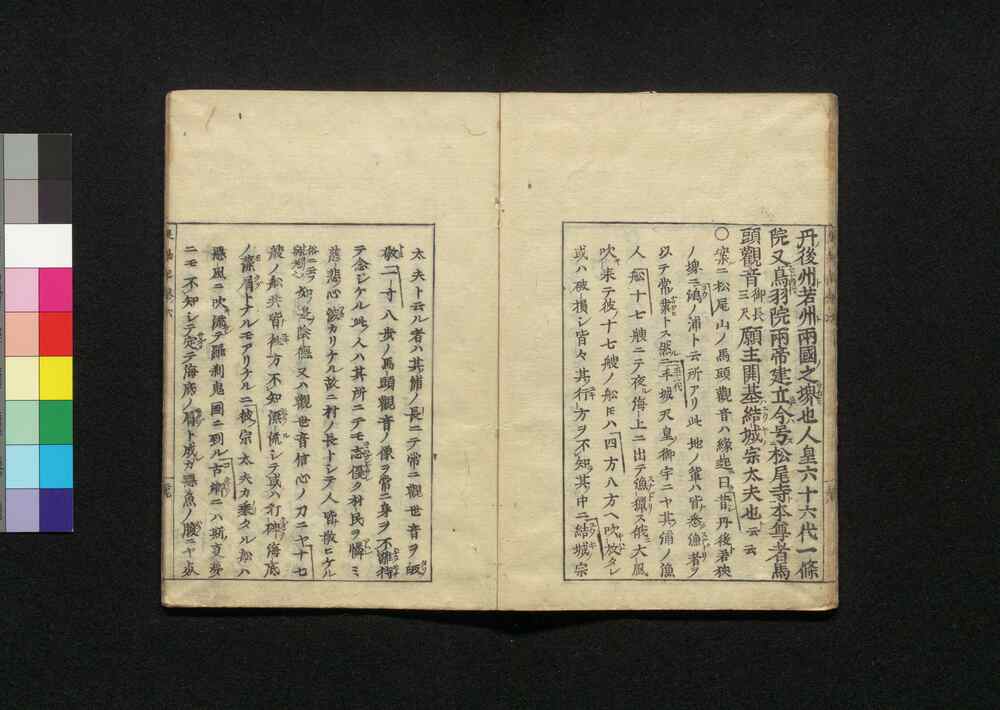 丹後州若州兩國之堺也人皇六十六代一條
院又鳥羽院兩帝建立今号松尾寺本尊者馬
頭觀音御長三尺願主開基結城宗太夫也云云
〇宋ニ松尾山ノ馬頭觀音ハ緣起曰昔丹後若狹
ノ堺ニ鴻ノ浦ト云所アリ此地ノ輩ハ皆漁者ヲ
以テ常ノ業トス然ニ平城天皇ノ御宇ニヤ其浦ノ漁
人舩十七艘ニテ夜ル海上ニ出テ漁獵ス俄大風
吹來テ彼十七艘ノ船圧ハ四方八方ヘ吹放タレ
或ハ破損シ皆々其行方ヲ不知其中ニ結城宗
太夫ト云ル者ハ其浦ノ長ニテ常ニ觀世音ヲ
敬二寸八歩ノ馬頭觀音ノ像ヲ常ニ身ヲ不離持
テ念シケル此人ハ其所ニテモ志優ク村民ヲ憐ミ
慈悲心深カリケル故ニ村ノ長トシテ人皆敬ヒケル
如是陰德又ハ觀世音信心ノ刀ニヤ十七
艘ノ船共皆行方不知漂流シテ或ハ打碎海底
ノ藻屑トナルモアリケルニ彼宗太夫カ乘タル船ハ
惡風ニ吹流テ羅刹鬼國ニ到ル古鄕ニハ斯夏夢
ニモ不知シテ定テ海底ノ屑ト成カ惡魚ノ腹ニヤ